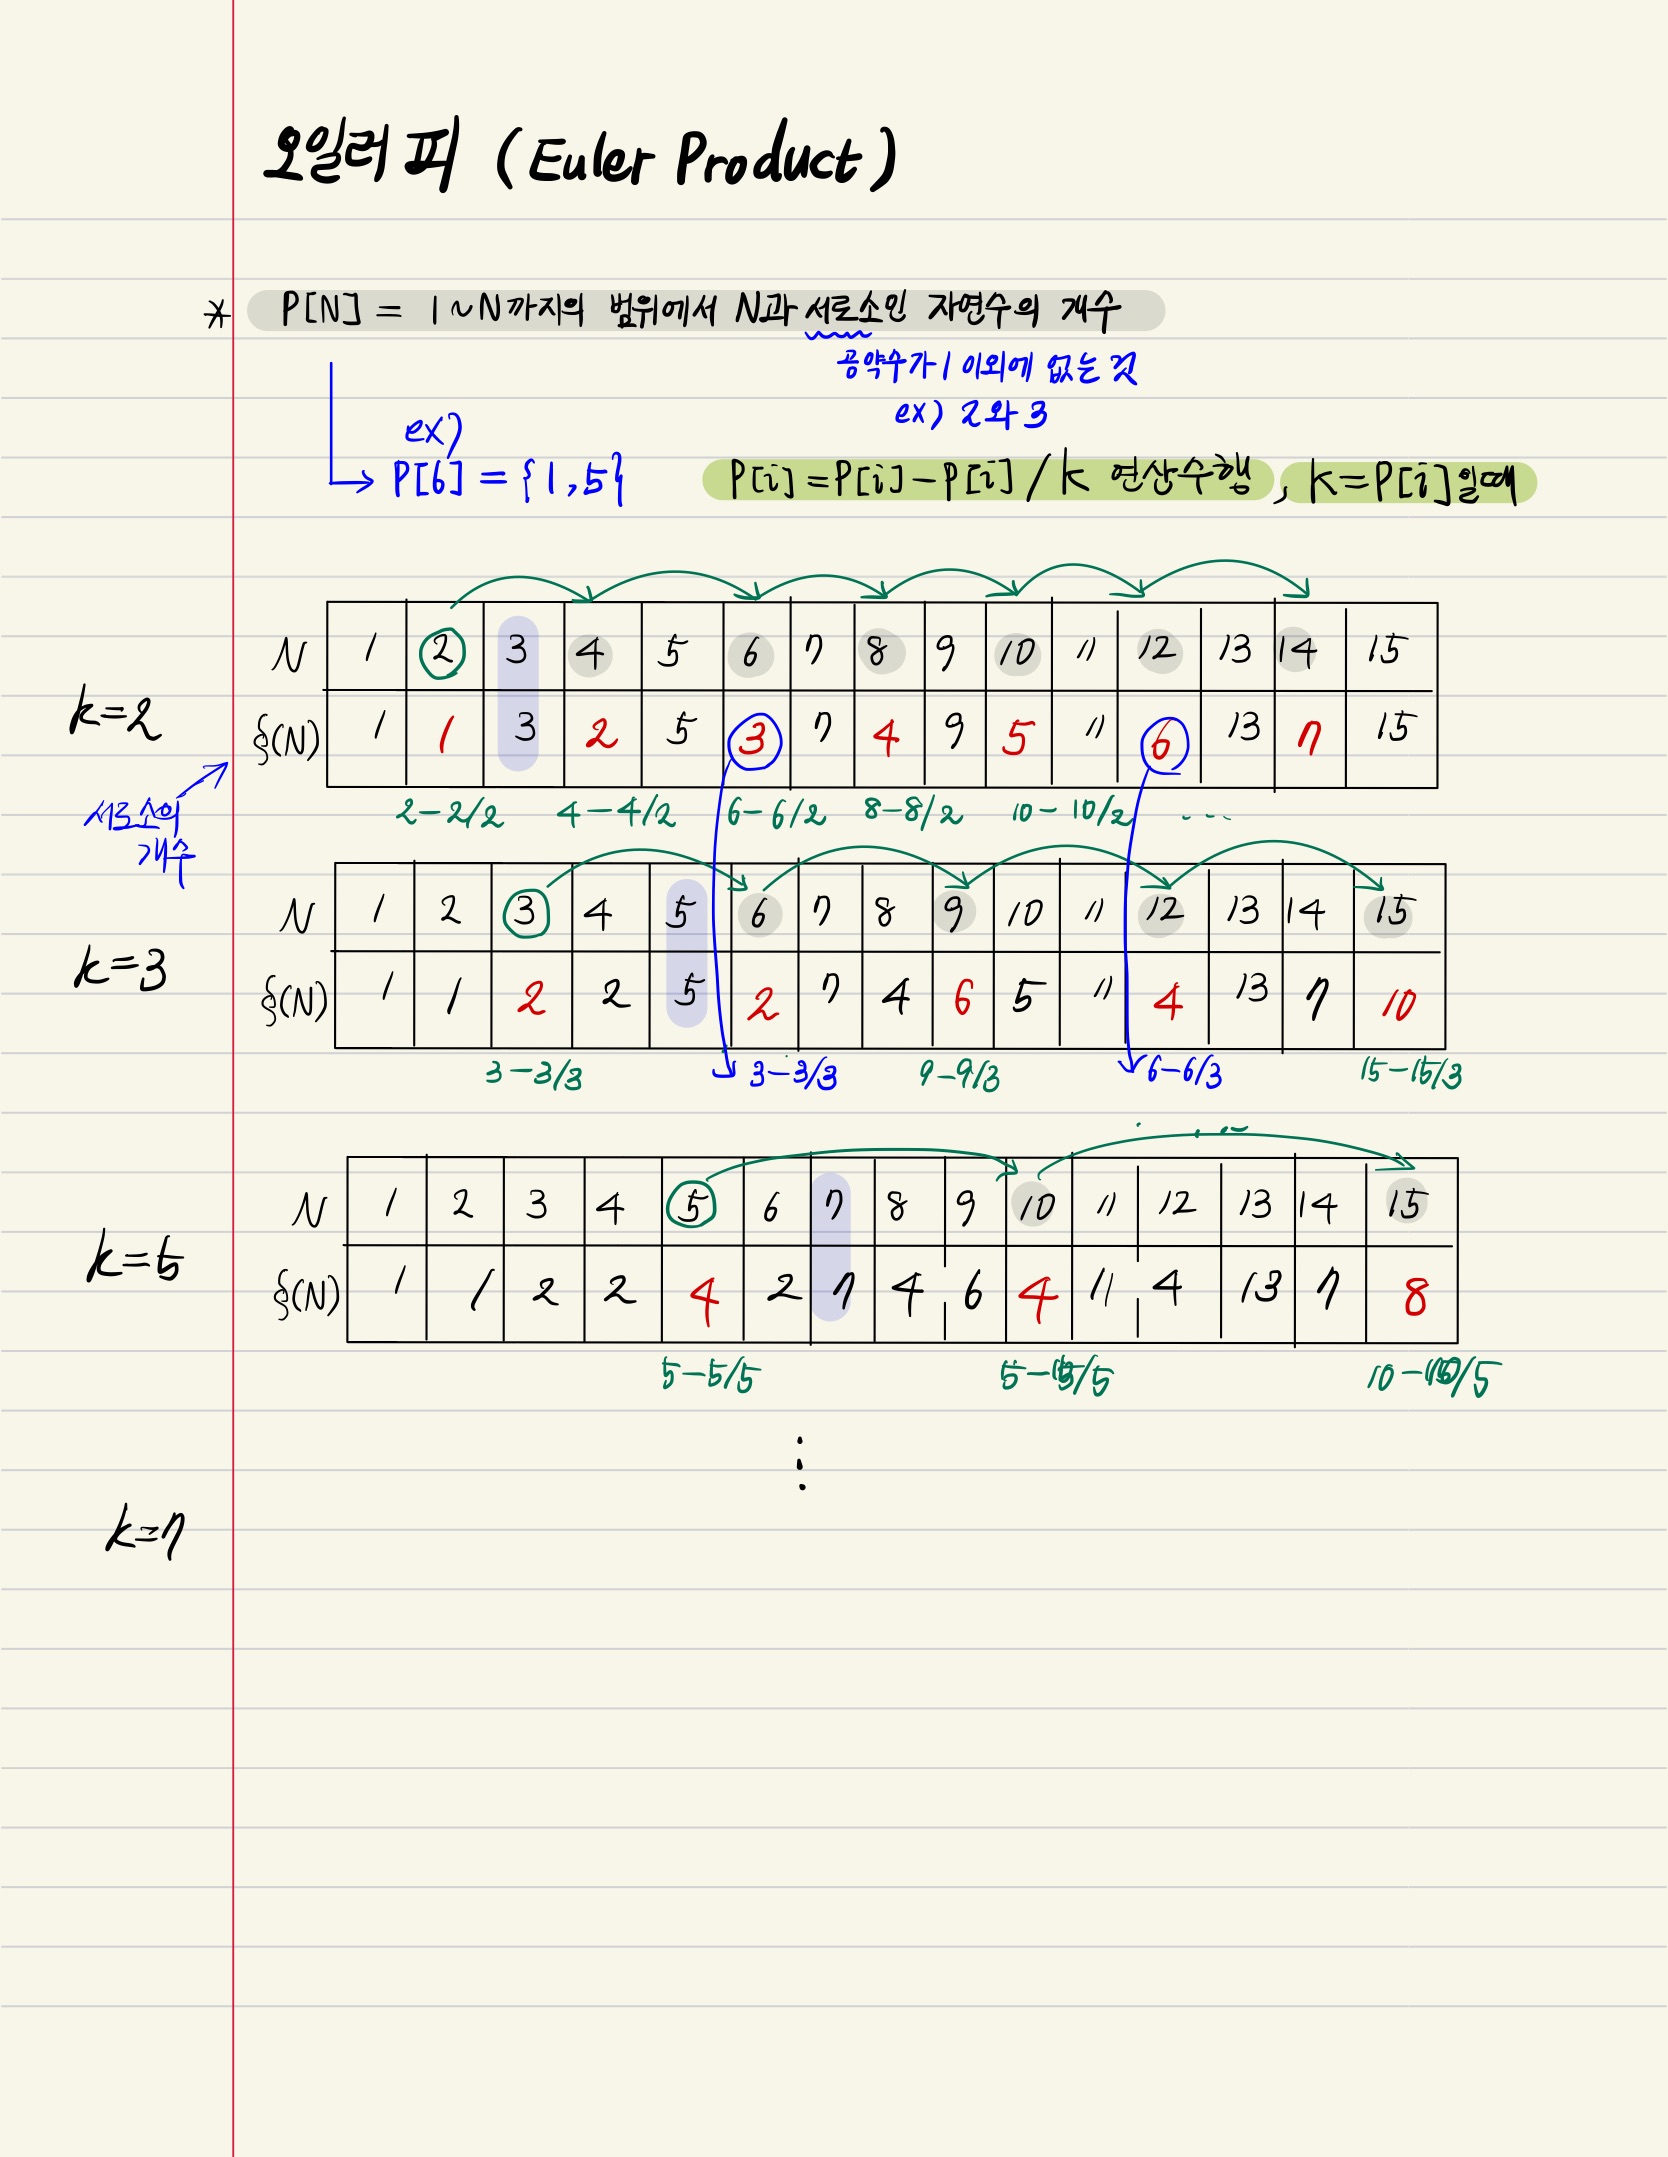 오일러 피 (Euler Product)
* P[N] = 1~N까지의 범위에서 N과 서로소인 자연수의 개수
공약수가 1 이외에 없는 것
ex) 2와 3
ex)
P[6] = {1,5}
P[i]=P[i]-P[i]/k 연산수행, k=P[i]일때
N 1 2 3 4 5 6 7 8 9 10 11 12 13 14 15
k=2
(N) 1 1 3 2 5 3 7 4 9 5 11 6 13 7 15
서로소의
개수
2-2/2 4-4/2 6-6/2 8-8/2 10-10/2 ....
N 1 2 3 4 5 6 7 8 9 10 11 12 13 14 15
k=3
(N) 1 1 2 2 5 2 7 4 6 5 11 4 13 7 10
3-3/3 3-3/3 9-9/3 6-6/3 15-15/3
N 1 2 3 4 5 6 7 8 9 10 11 12 13 14 15
k=5
(N) 1 1 2 2 4 2 7 4 6 4 11 4 13 7 8
5-5/5 5-5/5 10-10/5
⋮
k=7